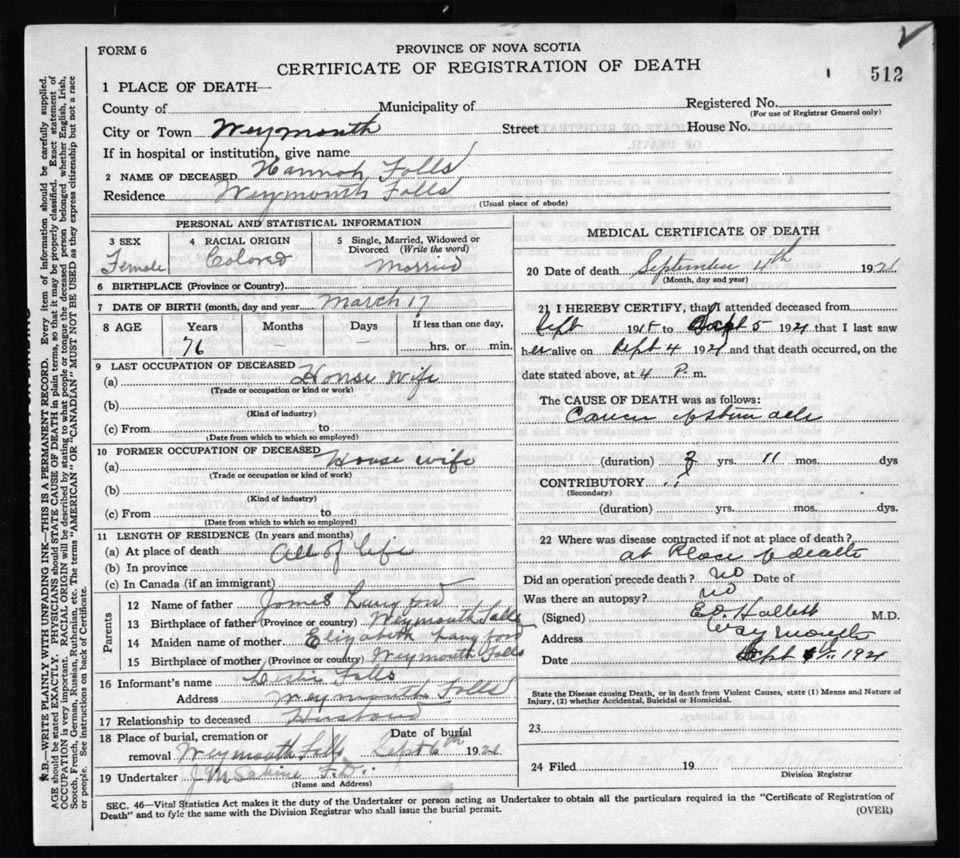 FORM 6
PROVINCE OF NOVA SCOTIA
CERTIFICATE OF REGISTRATION OF DEATH
512
1 PLACE OF DEATH—
County of Municipality of Registered No.
(For use of Registrar General only)
City or Town Weymouth Street House No.
If in hospital or institution, give name
2 NAME OF DECEASED Hannah Falls
Residence Weymouth Falls
(Usual place of abode)
PERSONAL AND STATISTICAL INFORMATION
3 SEX Female
4 RACIAL ORIGIN Colored
5 Single, Married, Widowed or Divorced (Write the word) Married
6 BIRTHPLACE (Province or Country)
7 DATE OF BIRTH (month, day and year) March 17
8 AGE Years Months Days If less than one day,
76 – – hrs. or min.
9 LAST OCCUPATION OF DECEASED
(a) House wife
(Trade or occupation or kind or work)
(b)
(Kind of industry)
(c) From to
(Date from which to which so employed)
10 FORMER OCCUPATION OF DECEASED
(a) House wife
(Trade or occupation or kind of work)
(b)
(Kind of industry)
(c) From to
(Date from which to which so employed)
11 LENGTH OF RESIDENCE (In years and months)
(a) At place of death All of Life
(b) In province
(c) In Canada (if an immigrant)
Parents
12 Name of father James Langford
13 Birthplace of father (Province or country) Weymouth Falls
14 Maiden name of mother Elizabeth Langford
15 Birthplace of mother (Province or country) Weymouth Falls
16 Informant's name Falls
Address Weymouth Falls
17 Relationship to deceased Husband
18 Place of burial, cremation or removal Weymouth Falls
Date of burial Sept 6th 1921
19 Undertaker
(Name and Address)
MEDICAL CERTIFICATE OF DEATH
20 Date of death September 4th 1921
(Month, day and year)
21 I HEREBY CERTIFY, that I attended deceased from
Sept 1918 to Sept 5 1921 that I last saw
her alive on Sept 4 1921 and that death occurred, on the
date stated above, at 4 P. m.
The CAUSE OF DEATH was as follows:
Cancer of
(duration) yrs. 11 mos. dys
CONTRIBUTORY
(Secondary)
(duration) yrs. mos. dys.
22 Where was disease contracted if not at place of death?
at Place of death
Did an operation precede death? no Date of
Was there an autopsy? no
(Signed) E.O. Hallett M.D.
Address Weymouth
Date Sept 1921
State the Disease causing Death, or in death from Violent Causes, state (1) Menns and Nature of
Injury, (2) whether Accidental, Suicidal or Homicidal.
23
24 Filed 19
Division Registrar
SEC. 46—Vital Statistics Act makes it the duty of the Undertaker or person acting as Undertaker to obtain all the particulars required in the "Certificate of Registration of
Death" and to fyle the same with the Division Registrar who shall issue the burial permit.
(OVER)
N.B.—WRITE PLAINLY WITH UNFADING INK—THIS IS A PERMANENT RECORD. Every item of information should be carefully supplied.
AGE should be stated EXACTLY. PHYSICIANS should STATE CAUSE OF DEATH in plain terms, so that it may be properly classified. Exact statement of
OCCUPATION is very important. RACIAL ORIGIN will be described by stating to what people or tongue the deceased person belonged whether English, Irish,
Scotch, French, German, Russian, Ruthenian, etc. The terms "AMERICAN" OR "CANADIAN" MUST NOT BE USED as they express citizenship but not a race
or people. See instructions on back of Certificate.